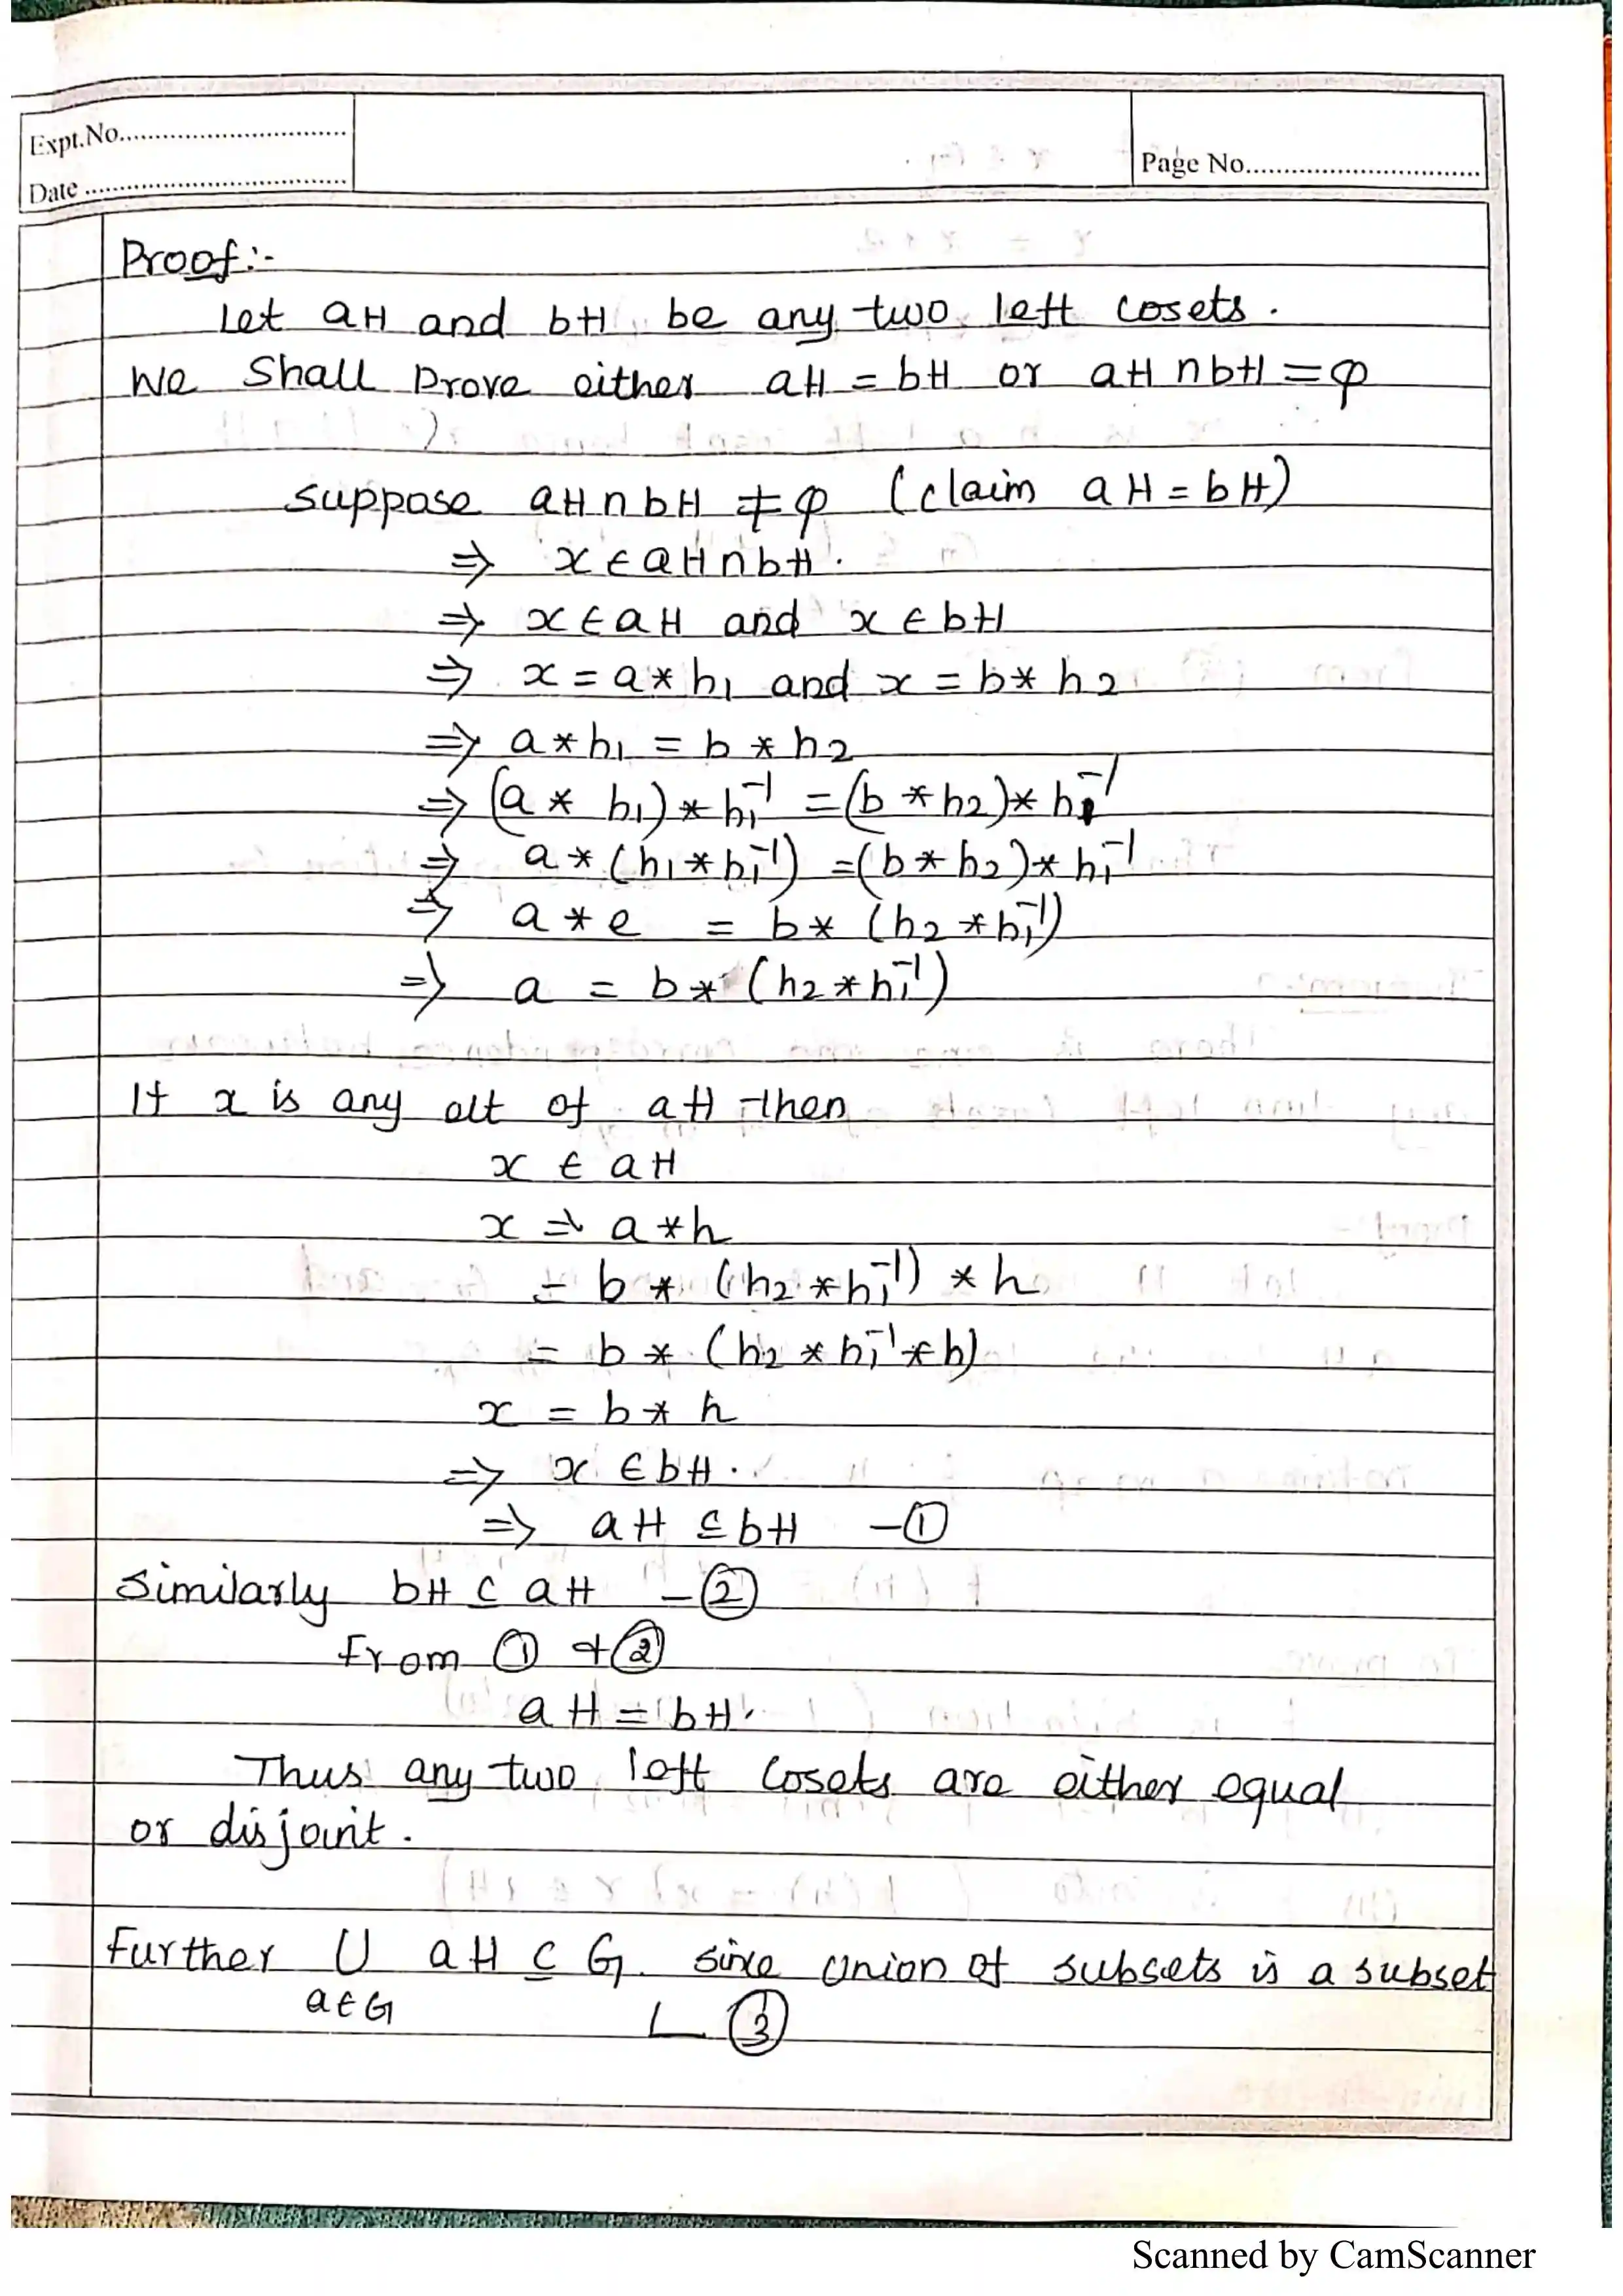 Expt.No..............................
Date ..................................
Page No..............................
Proof:-
Let aH and bH be any two left cosets.
We Shall Prove either aH = bH or aH ∩ bH = φ
suppose aH ∩ bH ≠ φ (claim aH = bH)
⇒ x ∈ aH ∩ bH.
⇒ x ∈ aH and x ∈ bH
⇒ x = a * h₁ and x = b * h₂
⇒ a * h₁ = b * h₂
⇒ (a * h₁) * h₁⁻¹ = (b * h₂) * h₁⁻¹
⇒ a * (h₁ * h₁⁻¹) = (b * h₂) * h₁⁻¹
⇒ a * e = b * (h₂ * h₁⁻¹)
⇒ a = b * (h₂ * h₁⁻¹)
If x is any elt of aH then
x ∈ aH
x ⇒ a * h
= b * (h₂ * h₁⁻¹) * h
= b * (h₂ * h₁⁻¹ * h)
x = b * h
⇒ x ∈ bH.
⇒ aH ⊆ bH —①
Similarly bH ⊆ aH —②
From ① & ②
aH = bH.
Thus any two left cosets are either equal
or disjoint.
Further ∪ aH ⊆ G. since union of subsets is a subset
a∈G ∟③
Scanned by CamScanner